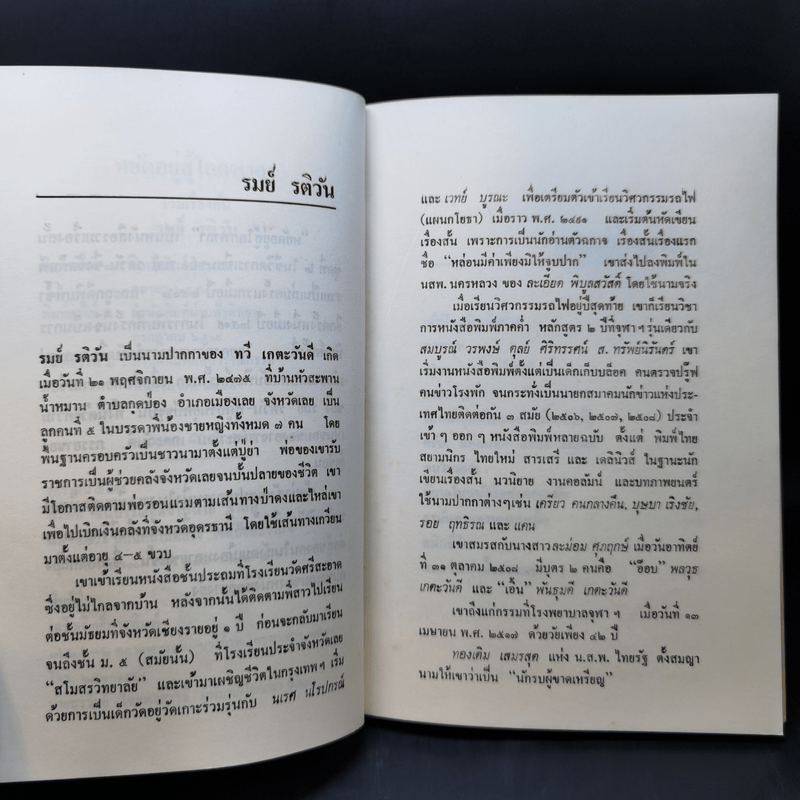 รมย์ รติวัน
รมย์ รติวัน เป็นนามปากกาของ ทวี เกตะวันดี เกิด
เมื่อวันที่ ๒๑ พฤศจิกายน พ.ศ. ๒๔๗๕ ที่บ้านหัวสะพาน
น้ำหมาน ตำบลกุดป่อง อำเภอเมืองเลย จังหวัดเลย เป็น
ลูกคนที่ ๕ ในบรรดาพี่น้องชายหญิงทั้งหมด ๗ คน โดย
พื้นฐานครอบครัวเป็นชาวนามาตั้งแต่ปู่ย่า พ่อของเขารับ
ราชการเป็นผู้ช่วยคลังจังหวัดเลยจนบั้นปลายของชีวิต เขา
มีโอกาสติดตามพ่อรอนแรมตามเส้นทางป่าดงและไหล่เขา
เพื่อไปเบิกเงินคลังที่จังหวัดอุดรธานี โดยใช้เส้นทางเกวียน
มาตั้งแต่อายุ ๔-๕ ขวบ
เขาเข้าเรียนหนังสือชั้นประถมที่โรงเรียนวัดศรีสะอาด
ซึ่งอยู่ไม่ไกลจากบ้าน หลังจากนั้นได้ติดตามพี่สาวไปเรียน
ต่อชั้นมัธยมที่จังหวัดเชียงรายอยู่ ๑ ปี ก่อนจะกลับมาเรียน
จนถึงชั้น ม. ๕ (สมัยนั้น) ที่โรงเรียนประจำจังหวัดเลย
“สโมสรวิทยาลัย” และเข้ามาเผชิญชีวิตในกรุงเทพฯ เริ่ม
ด้วยการเป็นเด็กวัดอยู่วัดเกาะร่วมรุ่นกับ นเรศ นโรปกรณ์
และ เวทย์ บูรณะ เพื่อเตรียมตัวเข้าเรียนวิศวกรรมรถไฟ
(แผนกโยธา) เมื่อราว พ.ศ. ๒๔๙๑ และเริ่มต้นหัดเขียน
เรื่องสั้น เพราะการเป็นนักอ่านตัวฉกาจ เรื่องสั้นเรื่องแรก
ชื่อ “หล่อนมีค่าเพียงมิให้จูบปาก” เขาส่งไปลงพิมพ์ใน
นสพ. นครหลวง ของ ละเอียด พิบูลสวัสดิ์ โดยใช้นามจริง
เมื่อเรียนวิศวกรรมรถไฟอยู่ปีสุดท้าย เขาก็เรียนวิชา
การหนังสือพิมพ์ภาคค่ำ หลักสูตร ๒ ปีที่จุฬาฯ รุ่นเดียวกับ
สมบูรณ์ วรพงษ์ ตุลย์ ศิริทรรศน์ ส. ทรัพย์นิรันดร์ เขา
เริ่มงานหนังสือพิมพ์ตั้งแต่เป็นเด็กเก็บบล็อค คนตรวจปรู๊ฟ
คนข่าวโรงพัก จนกระทั่งเป็นนายกสมาคมนักข่าวแห่งประ-
เทศไทยติดต่อกัน ๓ สมัย (๒๕๐๖, ๒๕๐๗, ๒๕๐๘) ประจำ
เข้าๆ ออกๆ หนังสือพิมพ์หลายฉบับ ตั้งแต่ พิมพ์ไทย
สยามนิกร ไทยใหม่ สารเสรี และ เดลินิวส์ ในฐานะนัก
เขียนเรื่องสั้น นวนิยาย งานคอลัมน์ และบทภาพยนตร์
ใช้นามปากกาต่างๆ เช่น เครียว คนกลางคืน, บุษบา เริงชัย,
รอย ฤทธิรณ และ แคน
เขาสมรสกับนางสาวละม่อม ศุภฤกษ์ เมื่อวันอาทิตย์
ที่ ๓๑ ตุลาคม ๒๕๐๘ มีบุตร ๒ คนคือ “อ๊อบ” พลวุธ
เกตะวันดี และ “เอิ้น” พันธุมดี เกตะวันดี
เขาถึงแก่กรรมที่โรงพยาบาลจุฬาฯ เมื่อวันที่ ๑๓
เมษายน พ.ศ. ๒๕๑๗ ด้วยวัยเพียง ๔๒ ปี
ทองเติม เสมรสุต แห่ง น.ส.พ. ไทยรัฐ ตั้งสมญา
นามให้เขาว่าเป็น “นักรบผู้ขาดเหรียญ”